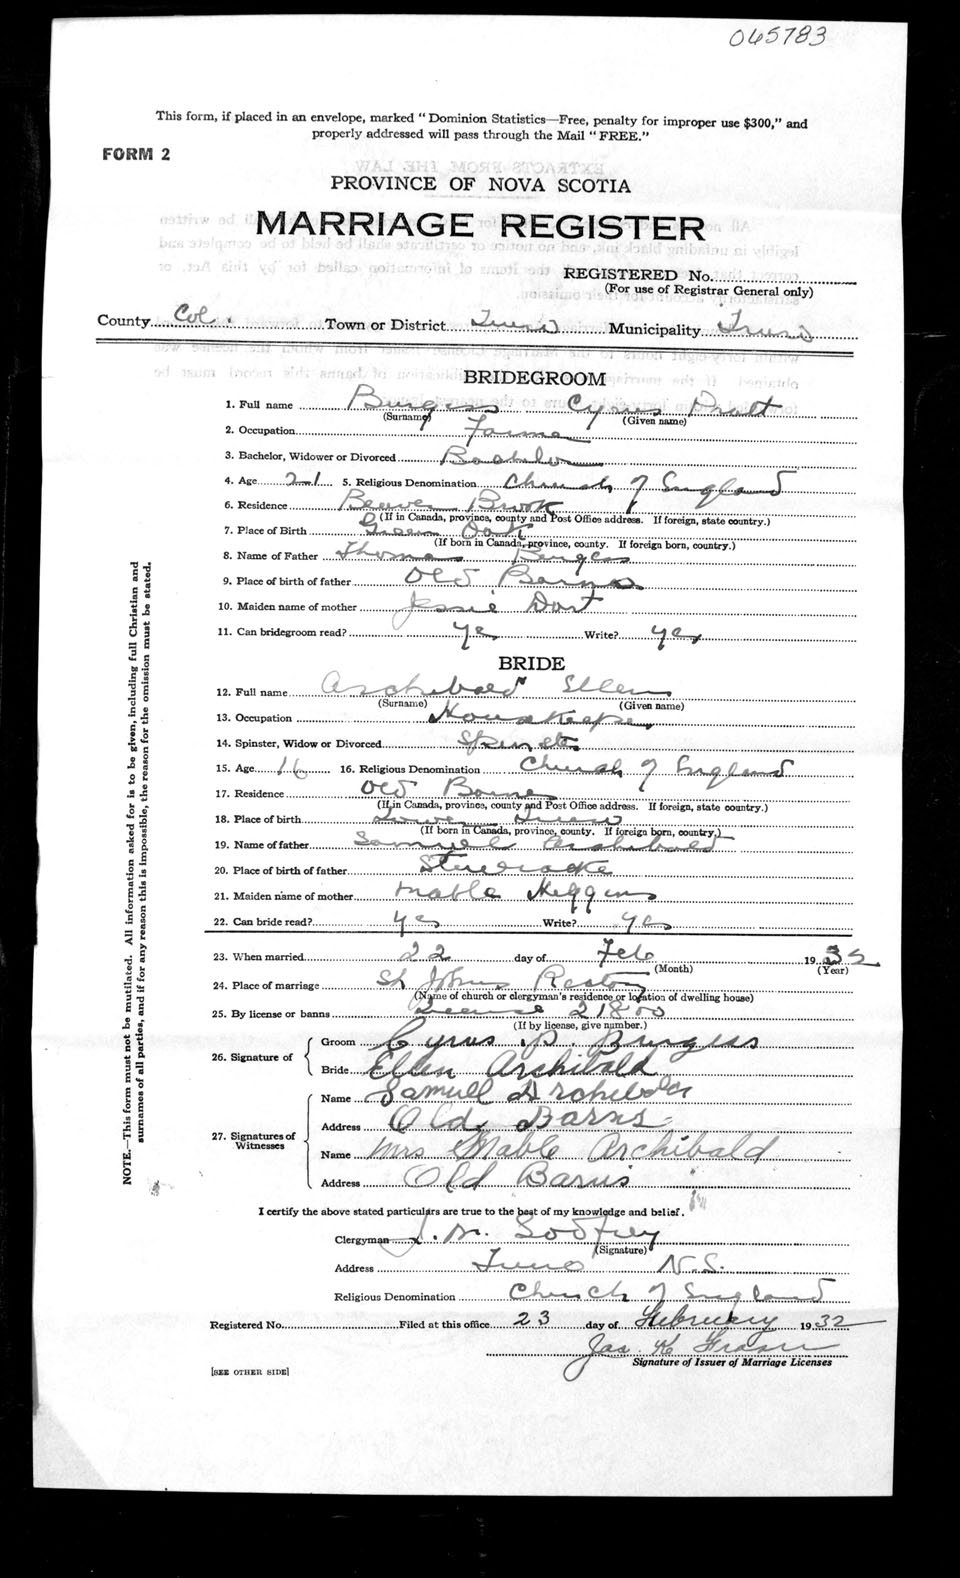 065783
This form, if placed in an envelope, marked "Dominion Statistics—Free, penalty for improper use $300," and
properly addressed will pass through the Mail "FREE."
FORM 2
PROVINCE OF NOVA SCOTIA
MARRIAGE REGISTER
REGISTERED No.
(For use of Registrar General only)
County Col. Town or District Truro Municipality Truro
BRIDEGROOM
1. Full name Burgess Cyrus Pratt
(Surname) (Given name)
2. Occupation Farmer
3. Bachelor, Widower or Divorced Bachelor
4. Age 21 5. Religious Denomination Church of England
6. Residence Beaver Brook
(If in Canada, province, county and Post Office address. If foreign, state country.)
7. Place of Birth Green Oak
(If born in Canada, province, county. If foreign born, country.)
8. Name of Father Thomas Burgess
9. Place of birth of father Old Barns
10. Maiden name of mother Jessie Dart
11. Can bridegroom read? yes Write? yes
BRIDE
12. Full name Archibald Ellen
(Surname) (Given name)
13. Occupation Housekeeper
14. Spinster, Widow or Divorced Spinster
15. Age 16 16. Religious Denomination Church of England
17. Residence Old Barns
(If in Canada, province, county and Post Office address. If foreign, state country.)
18. Place of birth Lower Truro
(If born in Canada, province, county. If foreign born, country.)
19. Name of father Samuel Archibald
20. Place of birth of father Stewiacke
21. Maiden name of mother Mable Higgins
22. Can bride read? yes Write? yes
23. When married 22 day of Feb 1932
(Month) (Year)
24. Place of marriage St Johns Rectory
(Name of church or clergyman's residence or location of dwelling house)
25. By license or banns License 21800
(If by license, give number.)
26. Signature of
Groom Cyrus P. Burgess
Bride Ellen Archibald
27. Signatures of Witnesses
Name Samuel Archibald
Address Old Barns
Name Mrs Mable Archibald
Address Old Barns
I certify the above stated particulars are true to the best of my knowledge and belief.
Clergyman J. M. Godfrey
(Signature)
Address Truro N.S.
Religious Denomination Church of England
Registered No. Filed at this office 23 day of February 1932
Jas. K Fraser
Signature of Issuer of Marriage Licenses
[SEE OTHER SIDE]
NOTE.—This form must not be mutilated. All information asked for is to be given, including full Christian and
surnames of all parties, and if for any reason this is impossible, the reason for the omission must be stated.